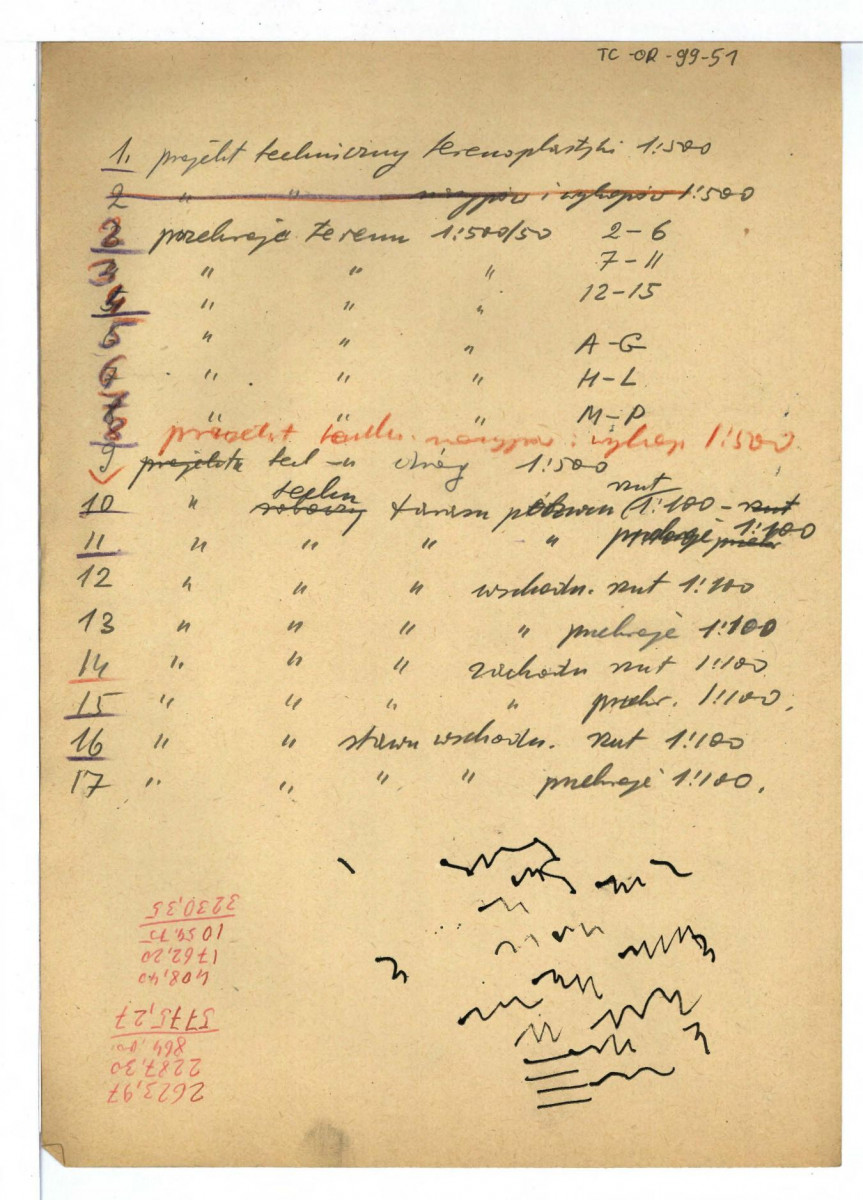 TC-OR-99-51
1. projekt techniczny terenoplastyki 1:500
2 " " nasypów i wykopów 1:500
3 przekroje terenu 1:500/50 2-6
" " " 7-11
" " " 12-15
" " " A-G
" " " H-L
" " " M-P
8 projekt techn. nasypów i wykop 1:500
9 projekta tech-n dróg 1:500
10 " techn roboczy tarasu rzut 1:100 - rzut
11 " " " " przekroje 1:100
12 " " " wschodn. rzut 1:100
13 " " " " przekroje 1:100
14 " " " zachodn rzut 1:100
15 " " " " przekr. 1:100.
16 " " stawu wschodn. rzut 1:100
17 " " " " przekroje 1:100.
2623,97
2287,30
864,00
5775,27
408,40
1762,20
1059,75
3230,35